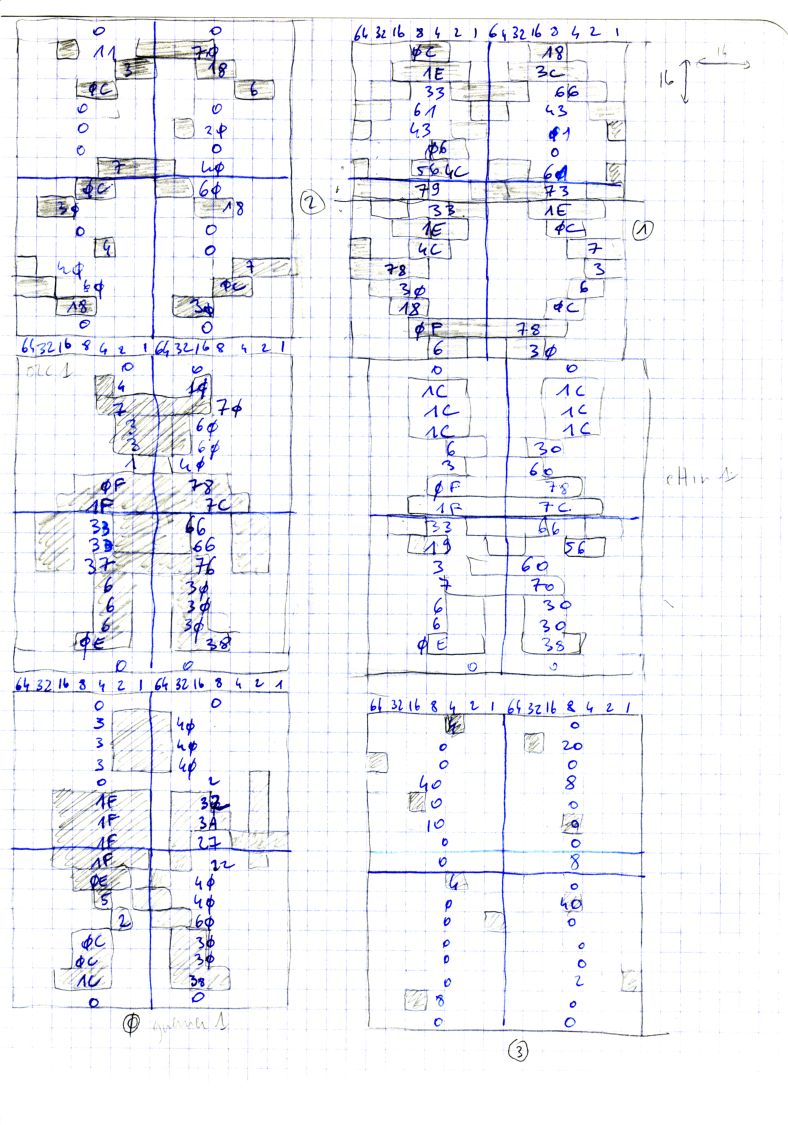 0 0
11 70
3 18
0C 6
0 0
0 20
0 0
7 40
0C 60
30 18
0 0
4 0
40 7
60 0C
18 30
0 0
②
64 32 16 8 4 2 1 64 32 16 8 4 2 1
0C 18
1E 3C
33 66
61 43
43 01
06 0
4C 60
79 73
33 1E
1E 0C
4C 7
78 3
30 6
18 0C
0F 78
6 30
①
16
16
64 32 16 8 4 2 1 64 32 16 8 4 2 1
0 0
4 10
7 70
3 60
3 60
1 40
0F 78
1F 7C
33 66
33 66
37 76
6 30
6 30
6 30
0E 38
0 0
0 0
1C 1C
1C 1C
1C 1C
6 30
3 60
0F 78
1F 7C
33 66
19 56
3 60
7 70
6 30
6 30
0E 38
0 0
64 32 16 8 4 2 1 64 32 16 8 4 2 1
0 0
3 40
3 40
3 40
0 2
1F 32
1F 3A
1F 27
1F 22
0E 40
5 40
2 60
0C 30
0C 30
1C 38
0 0
0
64 32 16 8 4 2 1 64 32 16 8 4 2 1
4 0
0 20
0 0
40 8
0 0
10 9
0 0
0 8
4 0
0 40
0 0
0 0
0 0
0 2
8 0
0 0
③